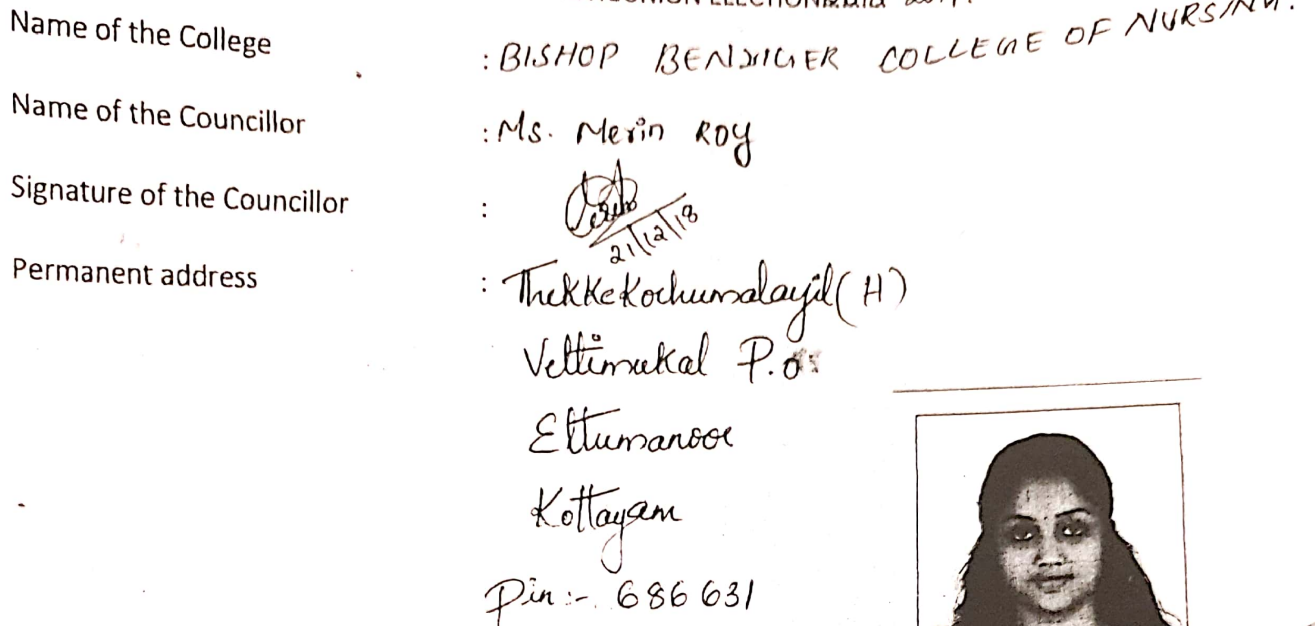 UNION ELECTION
Name of the College : BISHOP BENZIGER COLLEGE OF NURSING.
Name of the Councillor : Ms. Merin Roy
Signature of the Councillor :
21/12/18
Permanent address : Thekkekochumalayil (H)
Vettimukal P.O.
Ettumanoor
Kottayam
Pin :- 686 631